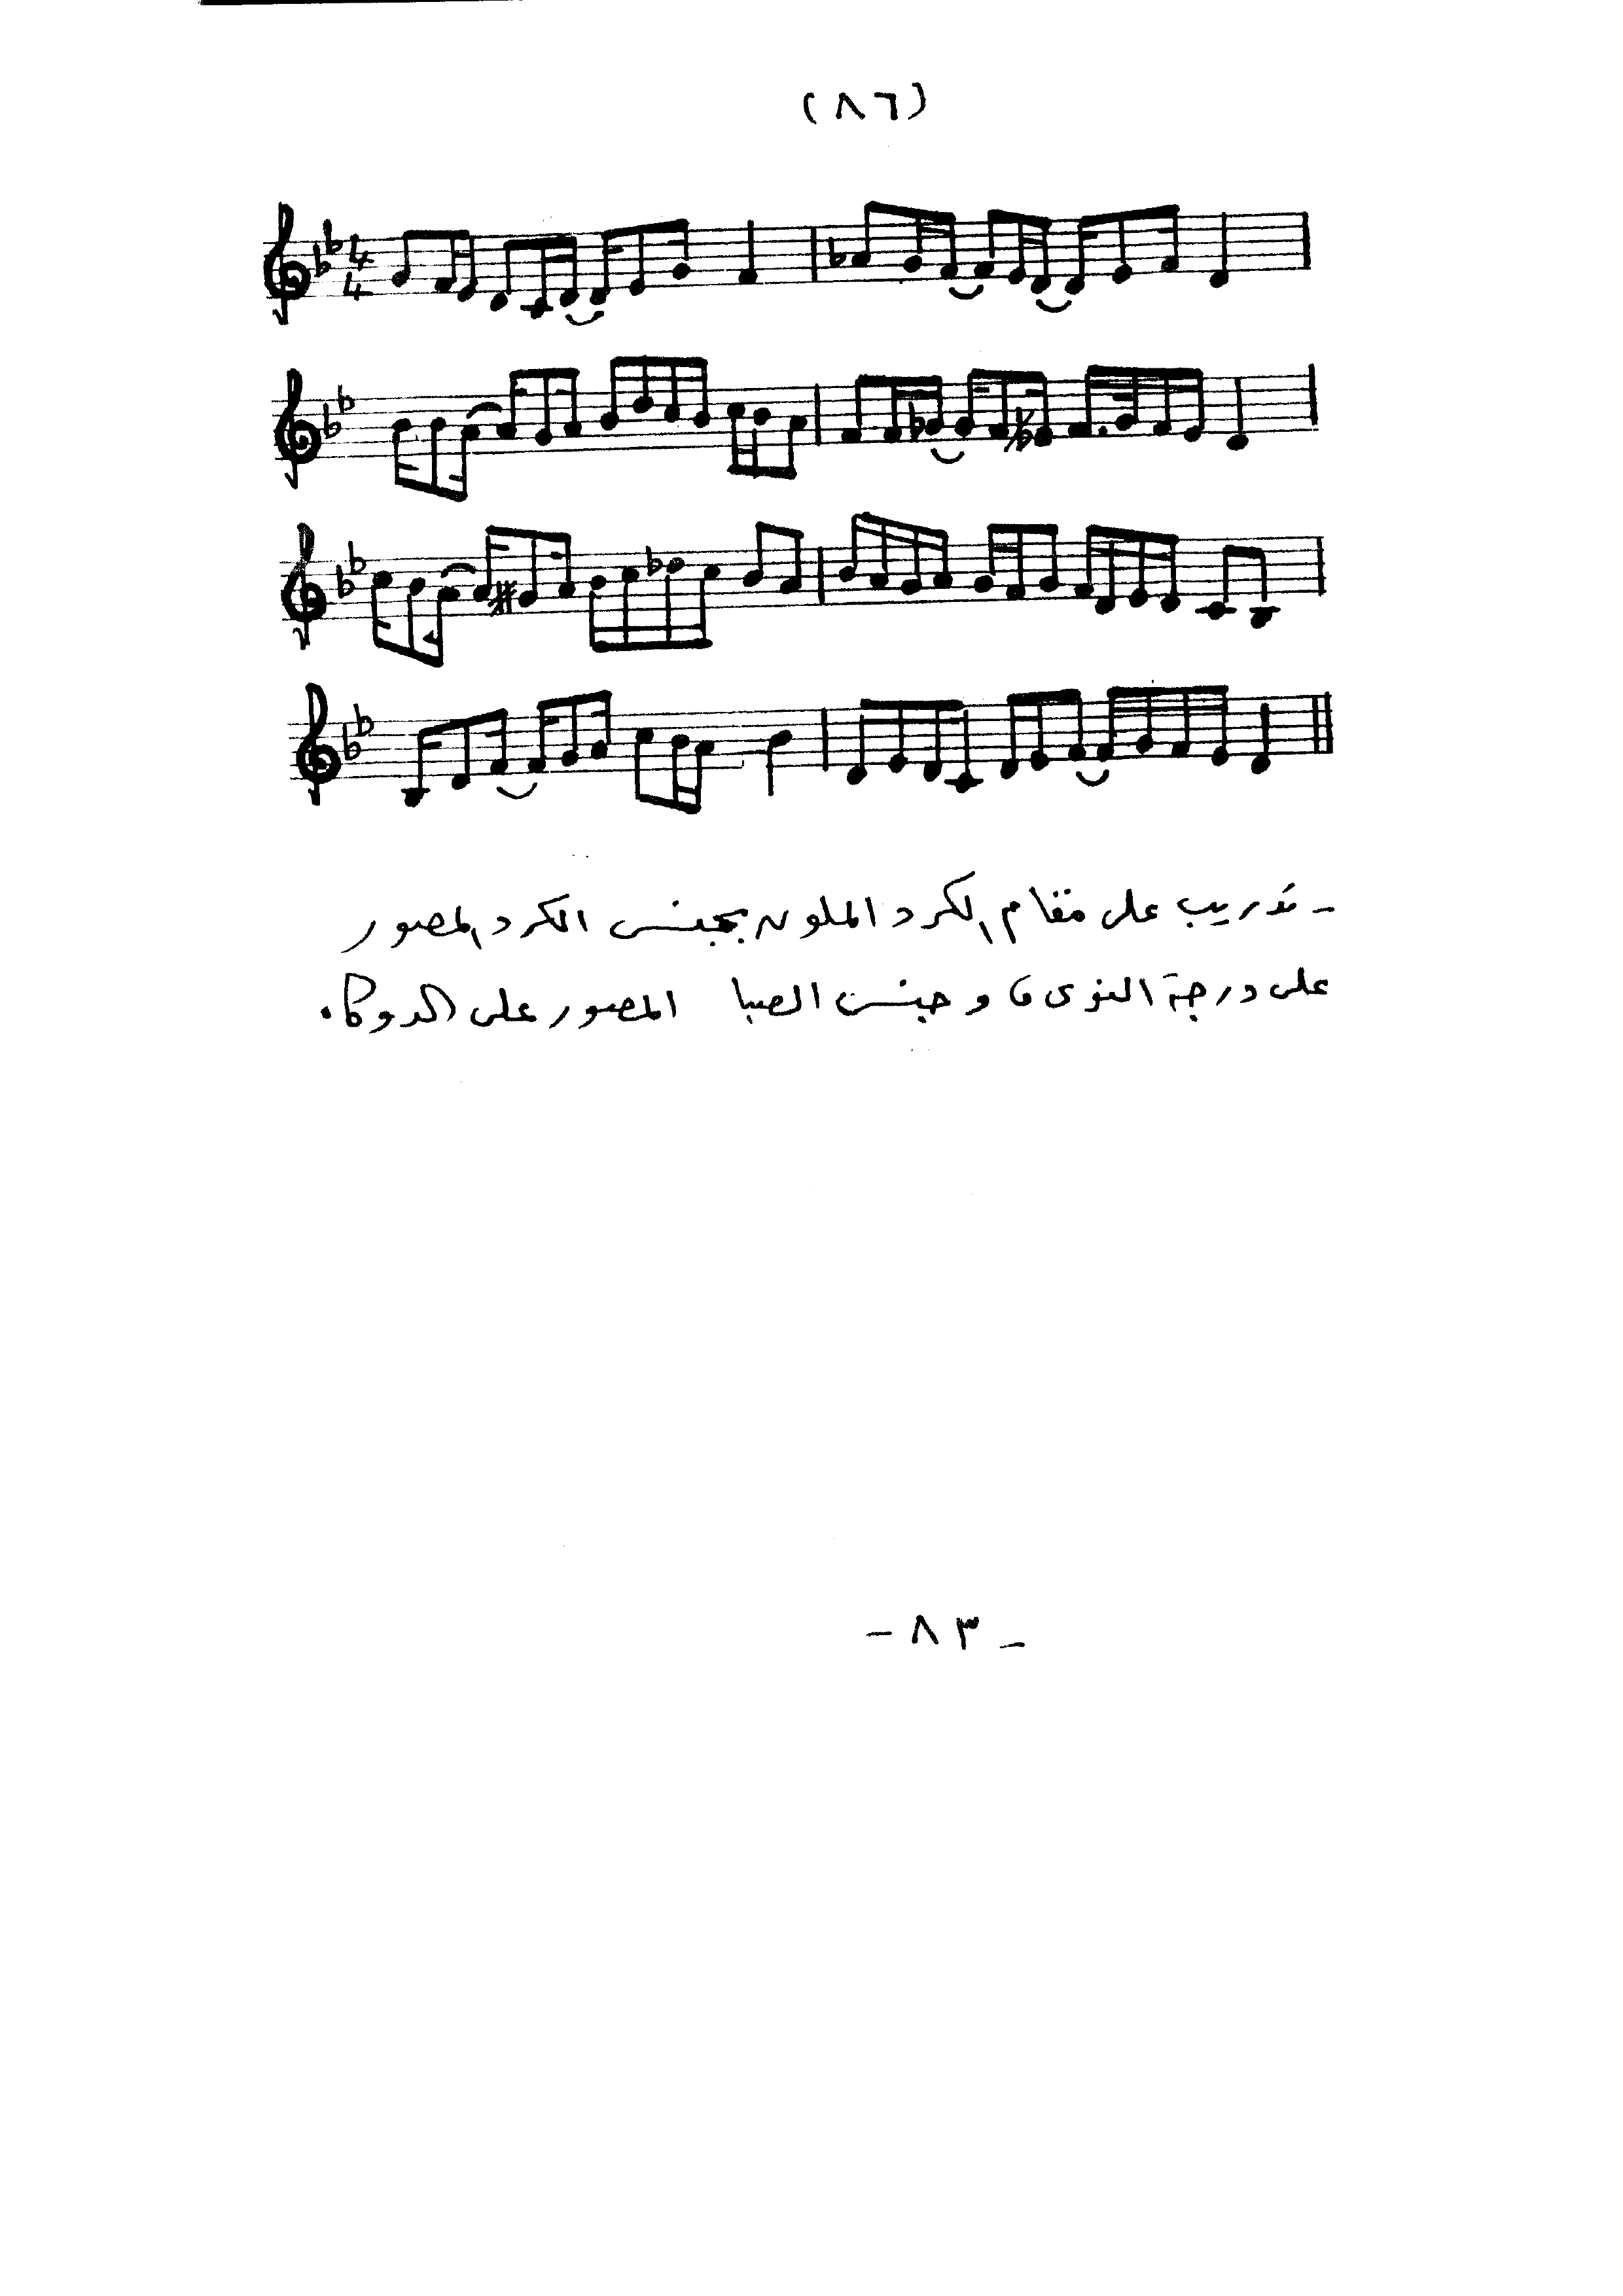 (٨٦)
4
4
- تدريب على مقام الكرد الملون بجنس الكرد المصور
على درجة النوى، وجنس الصبا المصور على الدوكاه.
- ٨٣ -